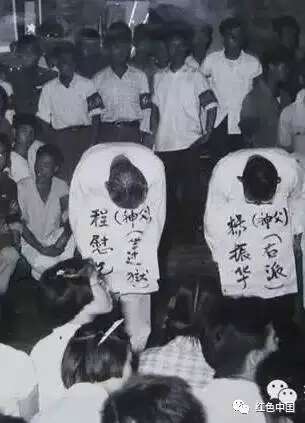 程慰
(神父)
进狱)
(神父)(右派)
振华
红色中国